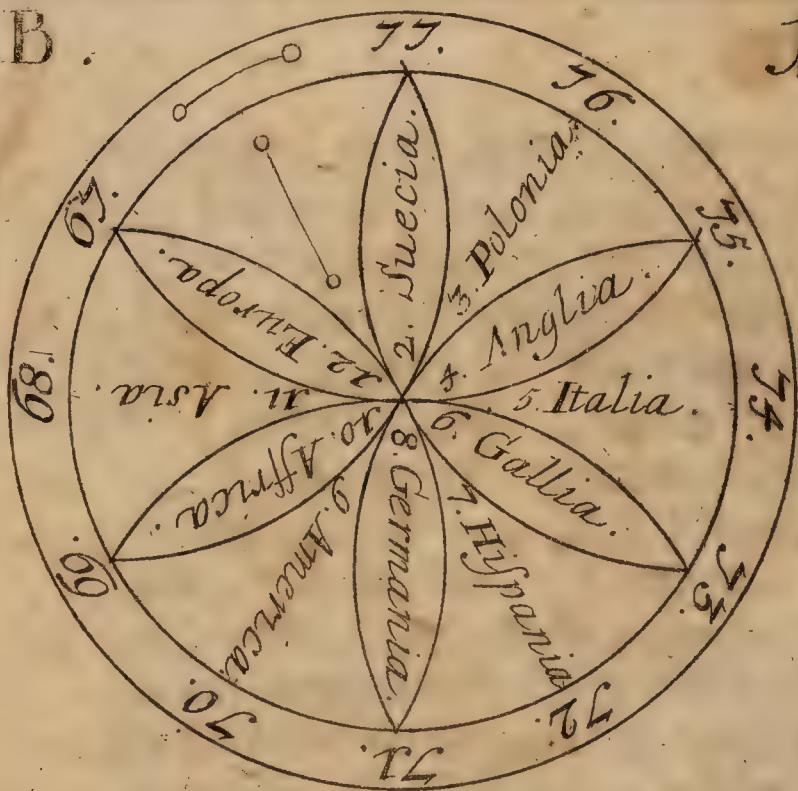 B.
77.
76.
75.
74.
73.
72.
71.
70.
69.
68.
67.
2. Suecia.
3. Polonia.
4. Anglia.
5. Italia.
6. Gallia.
7. Hiſpania
8. Germania.
9. America.
10. Affrica.
11. Asia.
12. Europa.